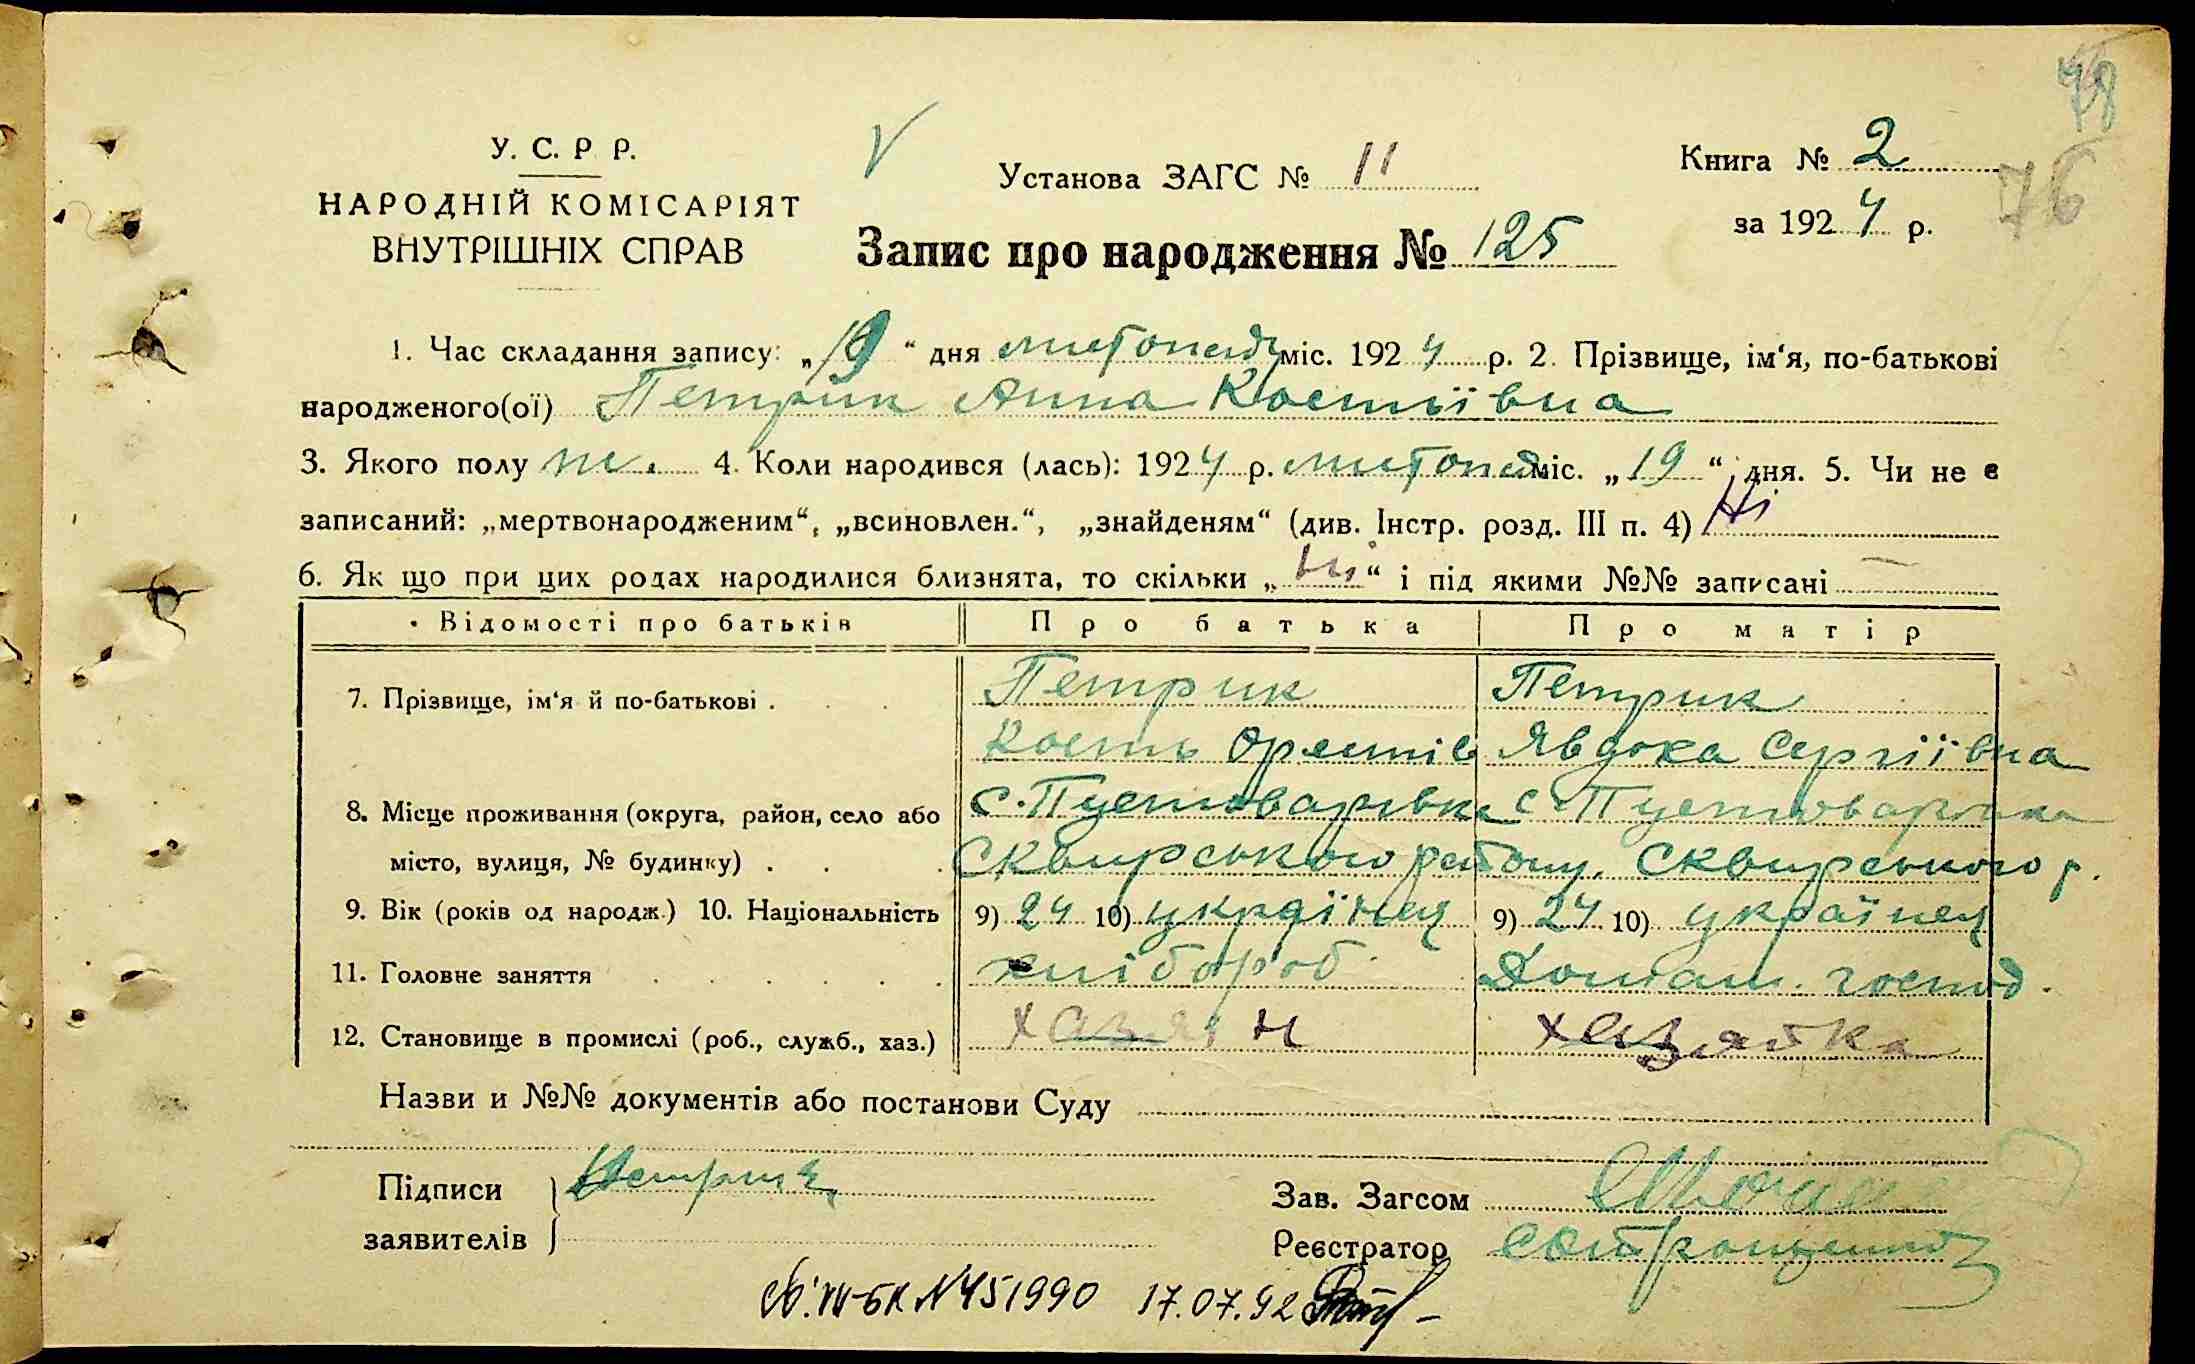 78
76
У. С. Р. Р.
НАРОДНІЙ КОМІСАРІЯТ
ВНУТРІШНІХ СПРАВ
V
Установа ЗАГС № 11
Книга № 2
за 1924 р.
Запис про народження № 125
1. Час складання запису: „19“ дня листопаду міс. 1924 р. 2. Прізвище, ім‘я, по-батькові
народженого(ої) Петрик Анна Костіївна
3. Якого полу ж. 4. Коли народився (лась): 1924 р. листопад міс. „19“ дня. 5. Чи не є
записаний: „мертвонародженим“, „всиновлен.“, „знайденям“ (див. Інстр. розд. III п. 4) Ні
6. Як що при цих родах народилися близнята, то скільки „Ні“ і під якими №№ записані —
Відомості про батьків Про батька Про матір
7. Прізвище, ім‘я й по-батькові . Петрик Петрик
Кость Орестів Явдока Сергіївна
8. Місце проживання (округа, район, село або с. Пустоварівка с. Пустоварівка
місто, вулиця, № будинку) . Сквирського району. Сквирського р.
9. Вік (років од народж.) 10. Національність 9) 24 10) українец 9) 24 10) українец
11. Головне заняття хлібороб Домаш. господ.
12. Становище в промислі (роб., служб., хаз.) хазяїн хазяйка
Назви и №№ документів або постанови Суду
Підписи
заявителів
Петрик
Зав. Загсом
Реєстратор
№ 451990 17.07.92